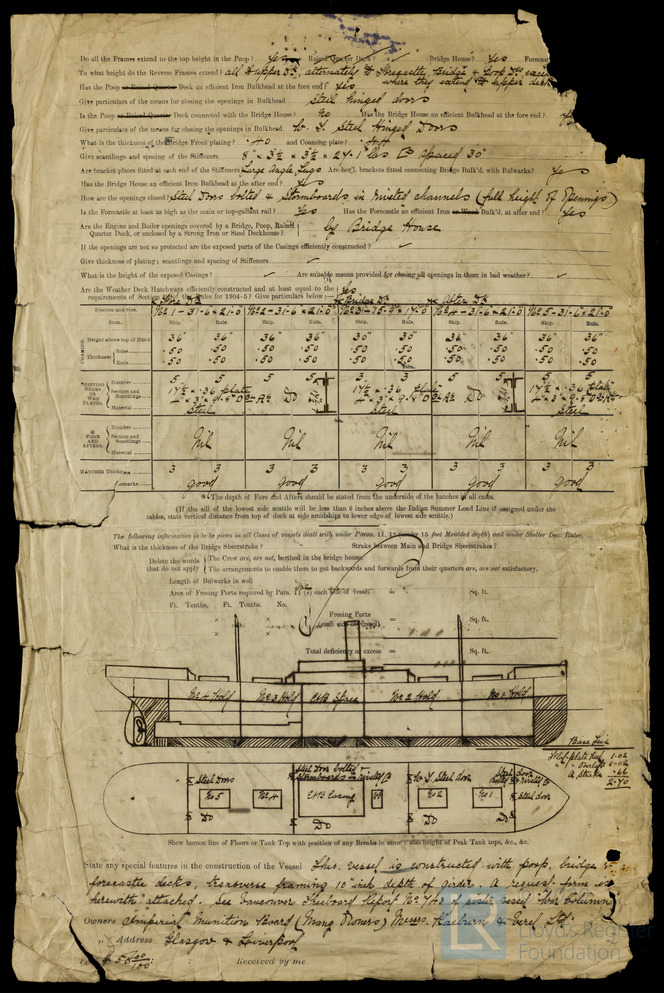 Do all the Frames extend to the top height in the Poop? Yes Raised Quarter Deck? Bridge House? Yes Forecast
To what height do the Reverse Frames extend? all to upper Dk, alternately to Forecastle, Bridge & Poop Dks except
where they extend to upper deck
Has the Poop or Raised Quarter Deck an efficient Iron Bulkhead at the fore end? Yes
Give particulars of the means for closing the openings in Bulkhead Steel hinged doors
Is the Poop or Raised Quarter Deck connected with the Bridge House? No Has the Bridge House an efficient Bulkhead at the fore end?
Give particulars of the means for closing the openings in Bulkhead W. T. Steel Hinged Doors
What is the thickness of the Bridge Front plating? .40 and Coaming plate? .44
Give scantlings and spacing of the Stiffeners 8" × 3½ × 3½ × 24.1 lbs spaced 30"
Are bracket plates fitted at each end of the Stiffeners? Large Angle Lugs Are horl. brackets fitted connecting Bridge Bulk'd. with Bulwarks? Yes
Has the Bridge House an efficient Iron Bulkhead at the after end? Yes
How are the openings closed? Steel Doors bolted & Stormboards in riveted channels (full height of openings)
Is the Forecastle at least as high as the main or top-gallant rail? Yes Has the Forecastle an efficient Iron or Wood Bulk'd. at after end? Yes
Are the Engine and Boiler openings covered by a Bridge, Poop, Raised
Quarter Deck, or enclosed by a Strong Iron or Steel Deckhouse? by Bridge House
If the openings are not so protected are the exposed parts of the Casings efficiently constructed?
Give thickness of plating; spacing and scantlings of Stiffeners
What is the height of the exposed Casings? Are suitable means provided for closing all openings in them in bad weather?
Are the Weather Deck Hatchways efficiently constructed and at least equal to the Yes
requirements of Section of the Rules for 1904-5? Give particulars below:—
Fore Dk Bridge Dk After Dk
Position and Size. No 1 - 31-6 × 21-0 No 2 - 31-6 × 21-0 No 3 - 15-9 × 17-0 No 4 - 31-6 × 21-0 No 5 - 31-6 × 21-0
Item. Ship. Rule. Ship. Rule. Ship. Rule. Ship. Rule. Ship. Rule.
Height above top of DECK 36 36" 36" 36" 30" 30" 36" 36" 36" 36"
COAMINGS Thickness Sides .50 .50 .50 .50 .50 .50 .50 .50 .50 .50
Ends .50 .50 .50 .50 .50 .50 .50 .50 .50 .50
SHIFTING BEAMS OR WEB PLATES. Number 5 5 5 5 3 3 5 5 5 5
Section and Scantlings 17½ × .36 plate Do 17½ × .36 plate Do 17½ × .36 plate
Material Steel Steel Steel
FORE AND AFTERS. Number
Section and Scantlings Nil Nil Nil Nil Nil
Material
HATCHES Thickness 3 3 3 3 3 3 3 3 3 3
Remarks good good good good good
* The depth of Fore and Afters should be stated from the underside of the hatches in all cases.
(If the sill of the lowest side scuttle will be less than 6 inches above the Indian Summer Load Line if assigned under the
tables, state vertical distance from top of deck at side amidships to lower edge of lowest side scuttle.)
The following information is to be given in all Cases of vessels dealt with under Paras. 11, 12 (under 15 feet Moulded depth) and under Shelter Deck Rules.
What is the thickness of the Bridge Sheerstrake? Strake between Main and Bridge Sheerstrakes?
Delete the words that do not apply
The Crew are, are not, berthed in the bridge house.
The arrangements to enable them to get backwards and forwards from their quarters are, are not satisfactory.
Length of Bulwarks in well
Area of Freeing Ports required by Para. 11 (e) each side of vessel = Sq. ft.
Ft. Tenths. Ft. Tenths. No.
× × Freeing Ports
× × (each side of vessel) = Sq. ft.
Total deficiency or excess = Sq. ft.
No 4 Hold No 3 Hold E&B Space No 2 Hold No 1 Hold
Base Line
Flat plate keel 1.02
A Strake .66
2.70
Steel Doors Steel Doors bolted & stormboards in riveted W T Steel door Steel door
No 5 No 4 E&B Casing No 2 No 1 Steel door
Do Do Do Do
Show hereon line of Floors or Tank Top with position of any Breaks in same; also height of Peak Tank tops, &c., &c.
State any special features in the construction of the Vessel This vessel is constructed with poop, bridge &
forecastle decks, transverse framing 10 inch depth of girder. A request form is
herewith attached. See Vancouver Freeboard Report No 743 of sister vessel "War Column"
Owners Imperial Munition Board (Mang Owners) Messrs.
" Address Glasgow & Liverpool
Fee $ 55 00/100 : : Received by me
LR Lloyd's Register
Foundation